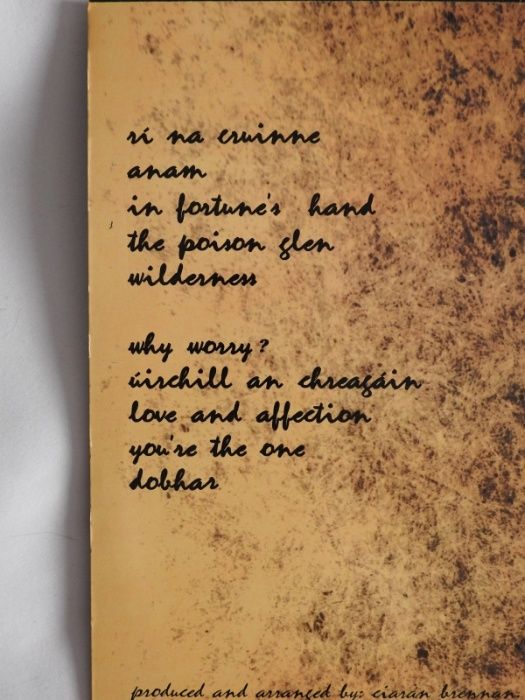 rí na cruinne
anam
in fortune's hand
the poison glen
wilderness
why worry?
úirchill an chreagáin
love and affection
you're the one
dobhar
produced and arranged by: ciarán brennan